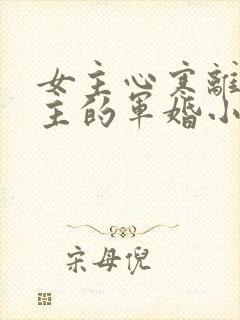 女主心寒離
主的軍婚小
宋母倪